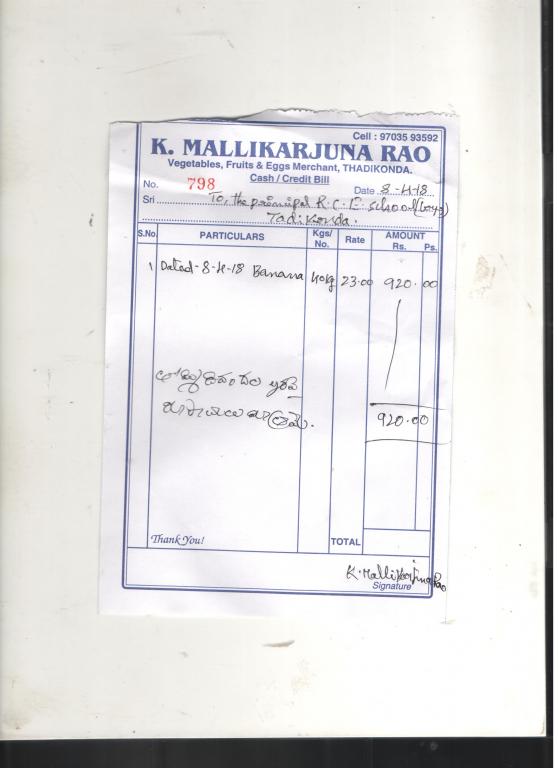 Cell : 97035 93592
K. MALLIKARJUNA RAO
Vegetables, Fruits & Eggs Merchant, THADIKONDA.
Cash / Credit Bill
No. 798
Date 8-4-18
Sri To, the principal R.C.E. School (Boys)
Tadikonda.
S.No. PARTICULARS Kgs/ No. Rate AMOUNT Rs. Ps.
1 Dated-8-4-18 Banana 40kg 23.00 920.00
రూపాయలు మాత్రమే.
920.00
Thank You!
TOTAL
K. Mallikarjuna Rao
Signature